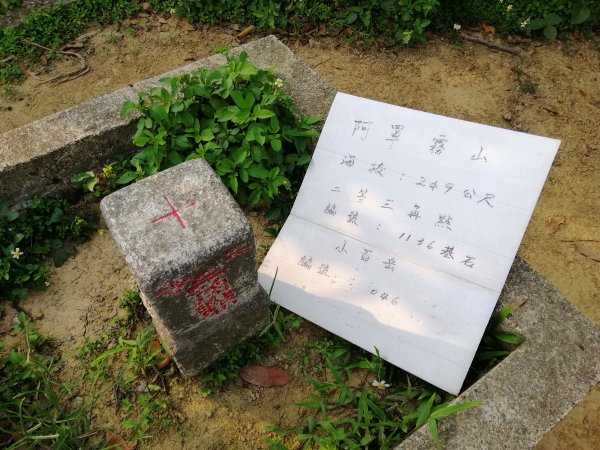 阿罩霧山
海拔：249公尺
二等三角點
編號：1136基石
小百岳
編號：046